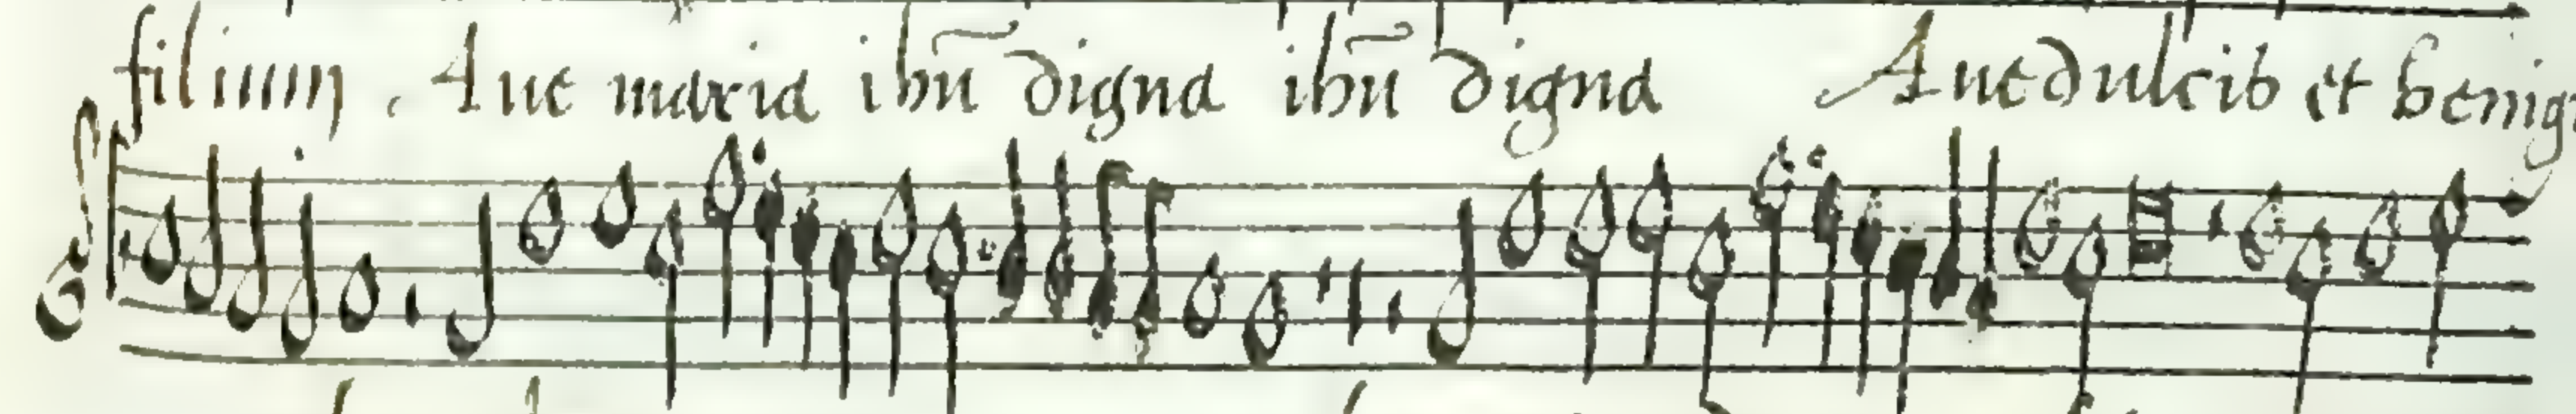 filium Aue maria ihũ digna ihũ digna Aue dulcis et benig